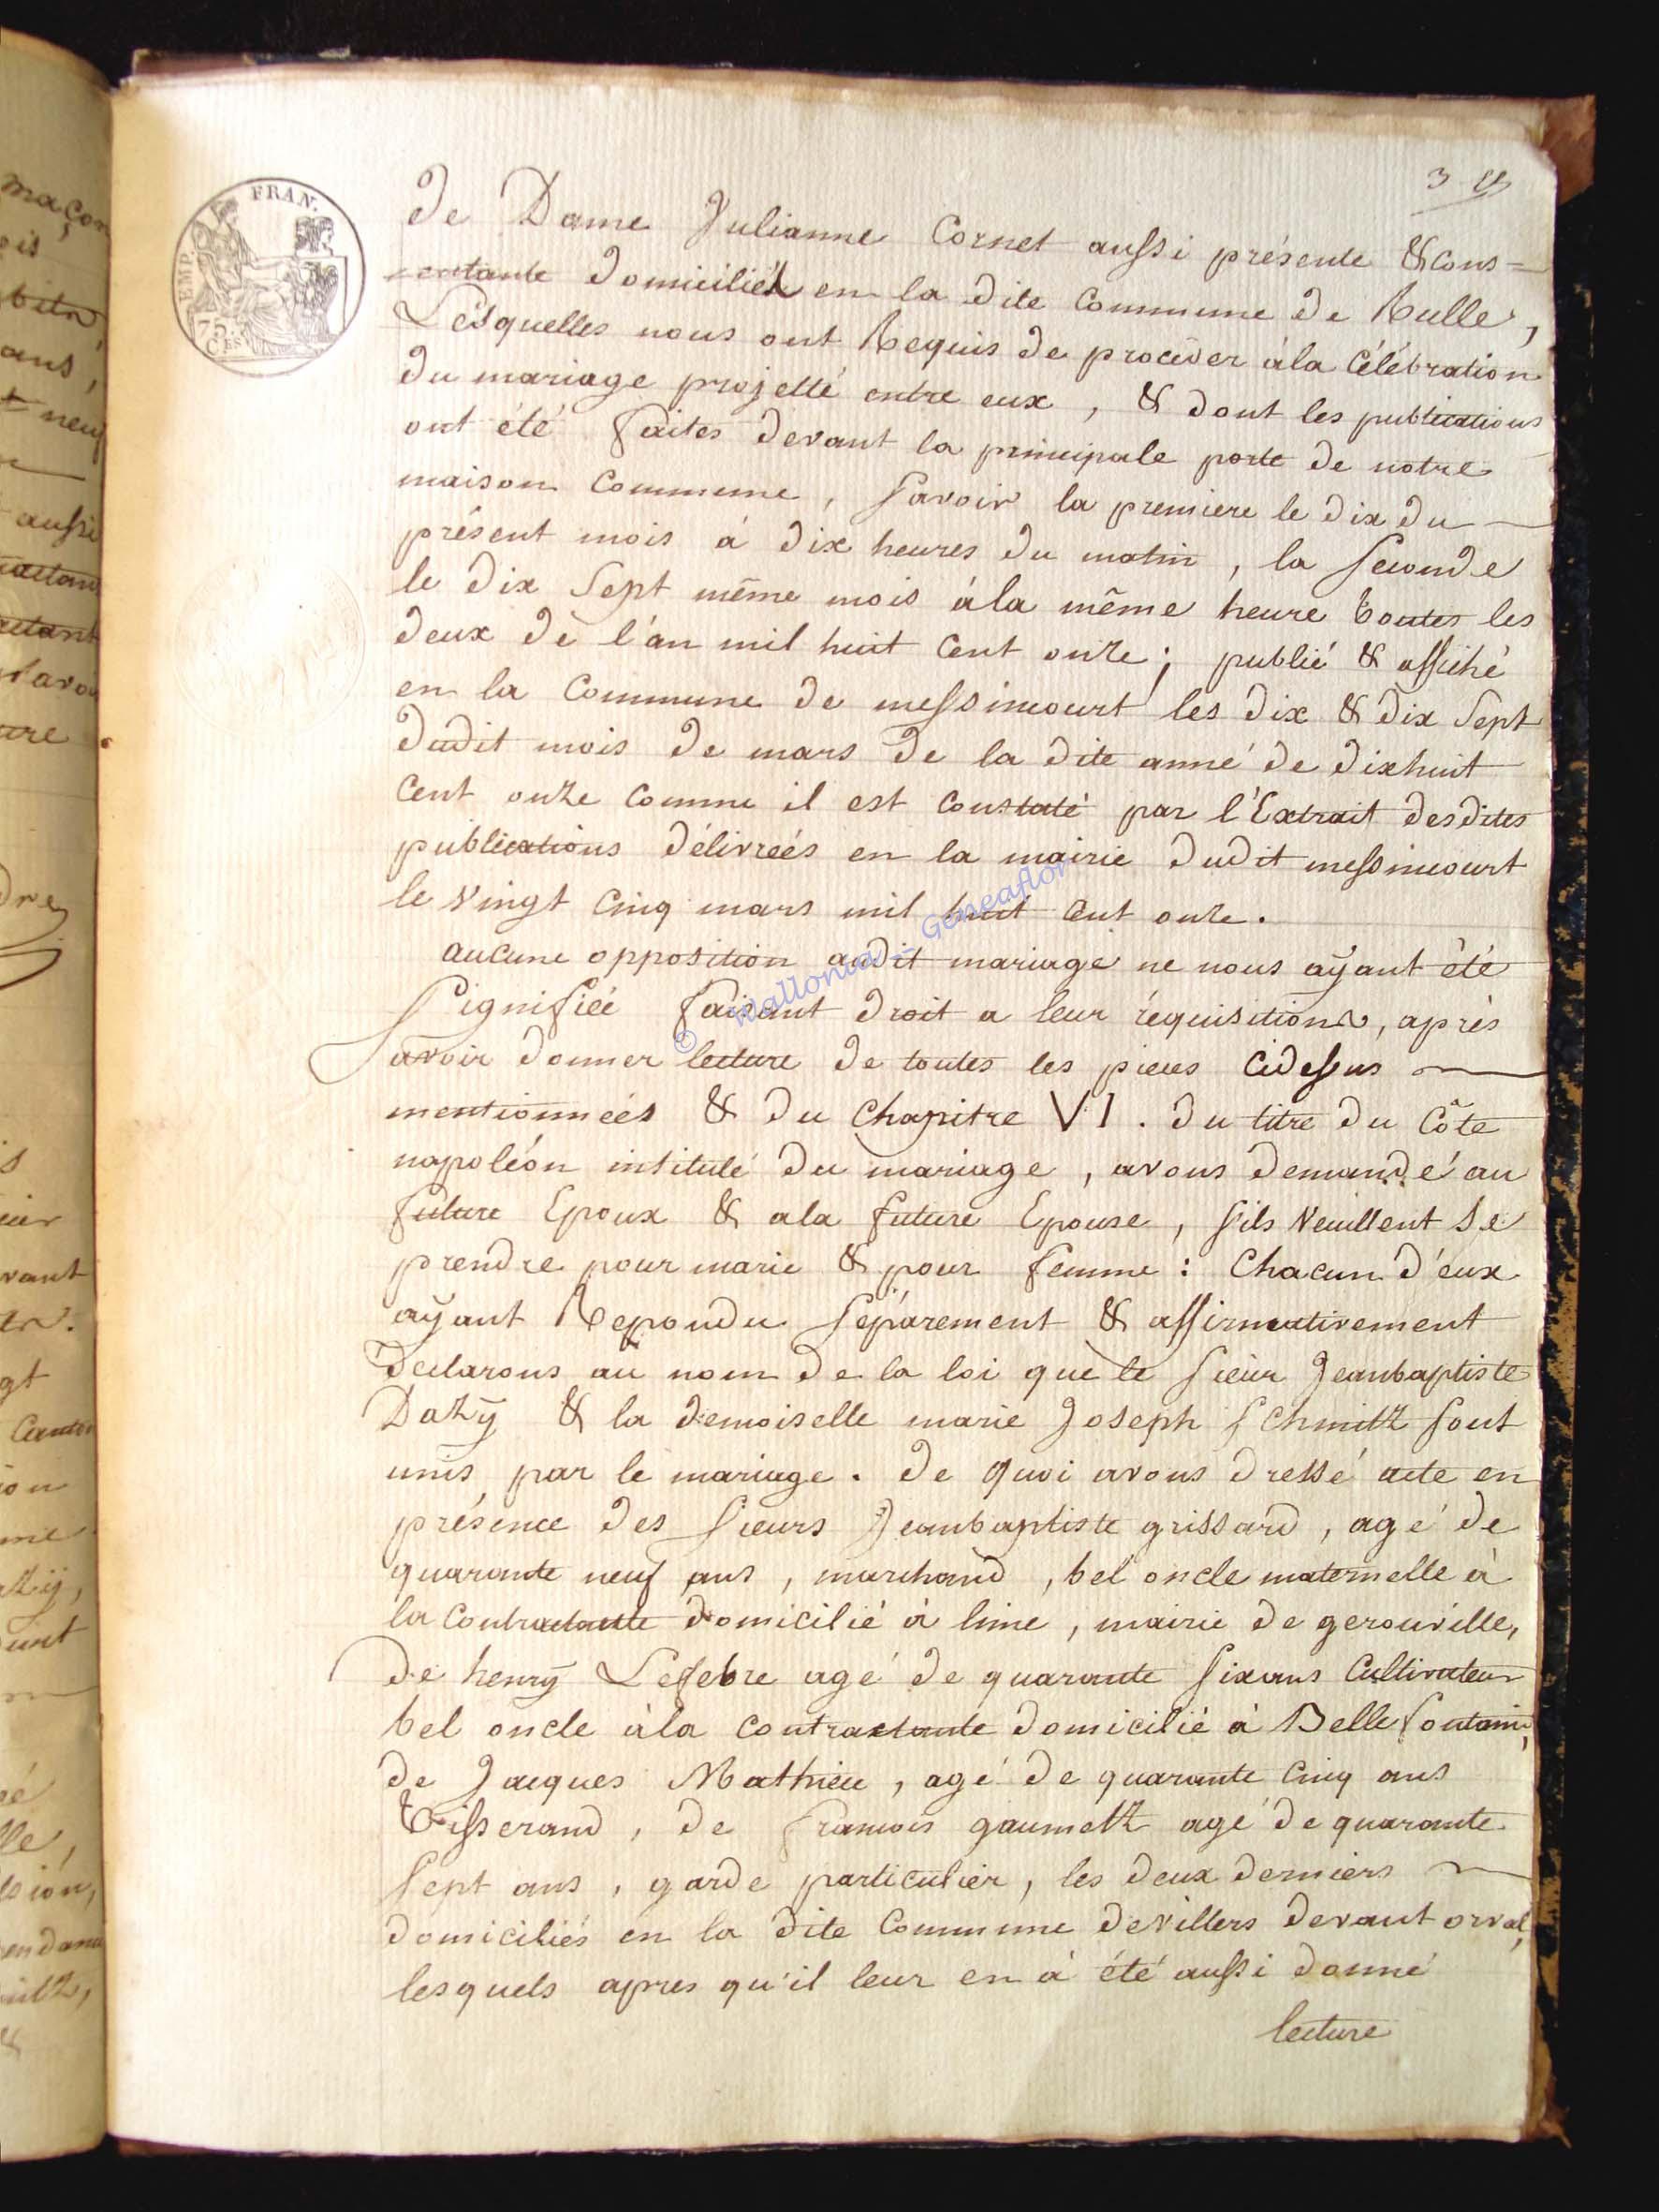 FRAN.
EMP.
75
CES
3
de Dame Julianne Cornet aussi présente & cons=
=entante domiciliés en la dite Commune de Rulle,
Lesquelles nous ont Requis de procéder àla Célébration
du mariage projetté entre eux, & dont les publications
ont été faites devant la principale porte de notre
maison Commune, savoir la premiere le dix du
présent mois à dix heures du matin, la seconde
le dix sept même mois àla même heure toutes les
deux de l'an mil huit Cent onze; publié & affiché
en la Commune de messincourt les dix & dix sept
dudit mois de mars de la dite anné de dixhuit
Cent onze comme il est constaté par l'Extrait desdites
publications délivreés en la mairie dudit messincourt
le vingt cinq mars mil huit cent onze.
aucune opposition audit mariage ne nous aÿant été
signifiée faisant droit a leur réquisitions, après
avoir donner lecture de toutes les pieces cidessus
mentionneés & du chapitre VI. du titre du Côte
napoléon intitulé du mariage, avons demandé au
future Epoux & ala future Epouse, s'ils veuillent se
prendre pour marie & pour femme: Chacun d'eux
aÿant Repondu séparement & affirmativement
declarons au nom de la loi que le sieur Jeanbaptiste
Dazÿ & la demoiselle marie Joseph schmitz sont
unis par le mariage. de quoi avons dressé acte en
présence des sieurs Jeanbaptiste grissard, agé de
quarante neuf ans, marchand, bel oncle maternelle à
la contractante domicilié à limé, mairie de gerouville,
de henrÿ Lefebre agé de quarante sixans Cultivateur
bel oncle àla contractante domicilié à Bellefontaine,
de Jacques Mathieu, agé de quarante cinq ans
Tisserand, de francois gaumetz agé de quarante
sept ans, garde particulier, les deux derniers
domiciliés en la dite Commune devillers devant orval,
lesquels apres qu'il leur en à été aussi donné
lecture
© Wallonia - Geneaflor